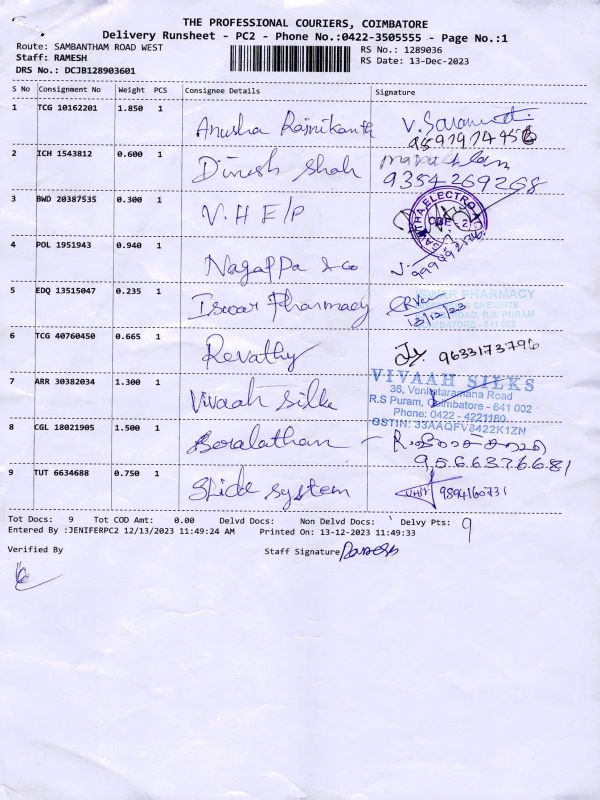 THE PROFESSIONAL COURIERS, COIMBATORE
Delivery Runsheet - PC2 - Phone No.:0422-3505555 - Page No.:1
Route: SAMBANTHAM ROAD WEST
RS No.: 1289036
Staff: RAMESH
RS Date: 13-Dec-2023
DRS No.: DCJB128903601
S No Consignment No Weight PCS Consignee Details Signature
1 TCG 10162201 1.850 1 Anusha Rajnikanth
2 ICH 1543812 0.600 1 Dinesh Shah
9354269268
3 BWD 20387535 0.300 1 V.H E/P
4 POL 1951943 0.940 1 Nagappa & co
5 EDQ 13515047 0.235 1 Iswar Pharmacy
ISWAR PHARMACY
CHEMISTS
ROAD, R.S. PURAM
COIMBATORE - 641 002
13/12/23
6 TCG 40760450 0.665 1 Revathy 9633173796
7 ARR 30382034 1.300 1 Vivaah Silks
VIVAAH SILKS
36, Venkataramana Road
R.S Puram, Coimbatore - 641 002
Phone: 0422 - 4221180
GSTIN: 33AAQFV8422K1ZN
8 CGL 18021905 1.500 1
9566376681
9 TUT 6634688 0.750 1 Slide System 9894160731
Tot Docs: 9 Tot COD Amt: 0.00 Delvd Docs: Non Delvd Docs: Delvy Pts: 9
Entered By :JENIFERPC2 12/13/2023 11:49:24 AM Printed On: 13-12-2023 11:49:33
Verified By Staff Signature Ramesh